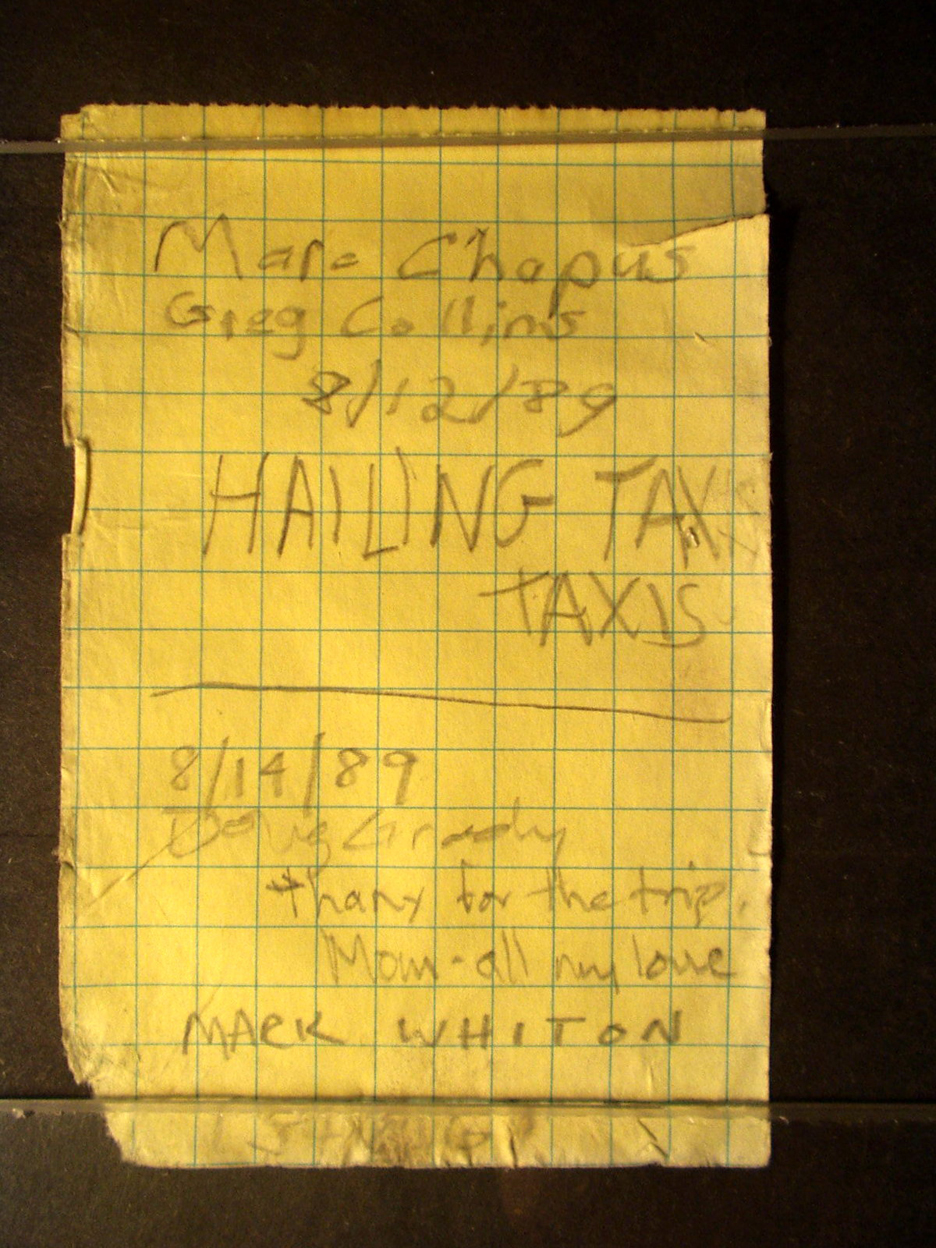 Marc Chapus
Greg Collins
8/12/89
HAILING TAX
TAXIS
8/14/89
Doug Grady
thanx for the trip.
Mom - all my love
MARK WHITON